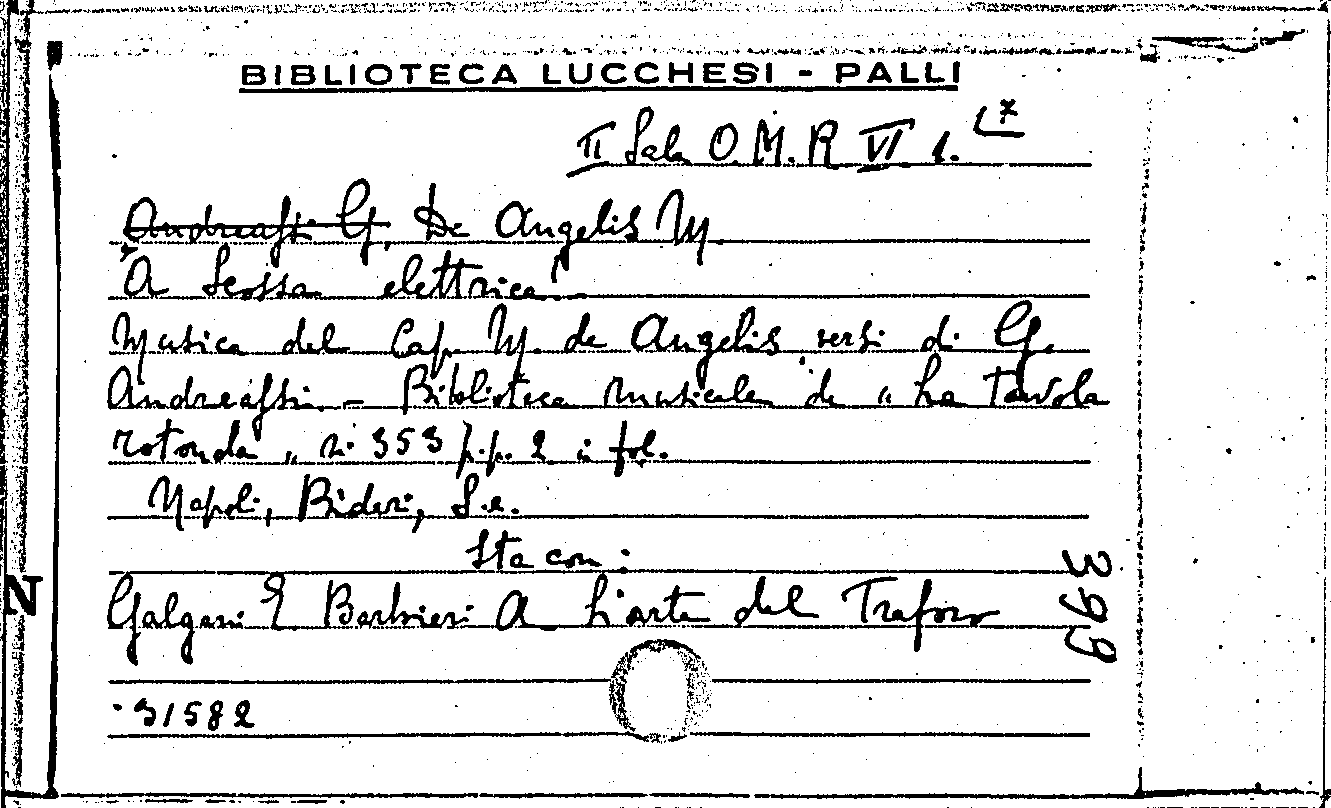 BIBLIOTECA LUCCHESI - PALLI
II Sala O. M. R VI 1. 7
Andreassi G, De Angelis M.
'A Scossa elettrica!
Musica del Cap. M. de Angelis versi di G.
Andreassi. - Biblioteca musicale de "La Tavola
rotonda" n. 353 p.p. 2 in fol.
Napoli, Bideri, S.e.
Sta con:
Galgani E Barbieri A L'arte del Traforo
399
31582
N